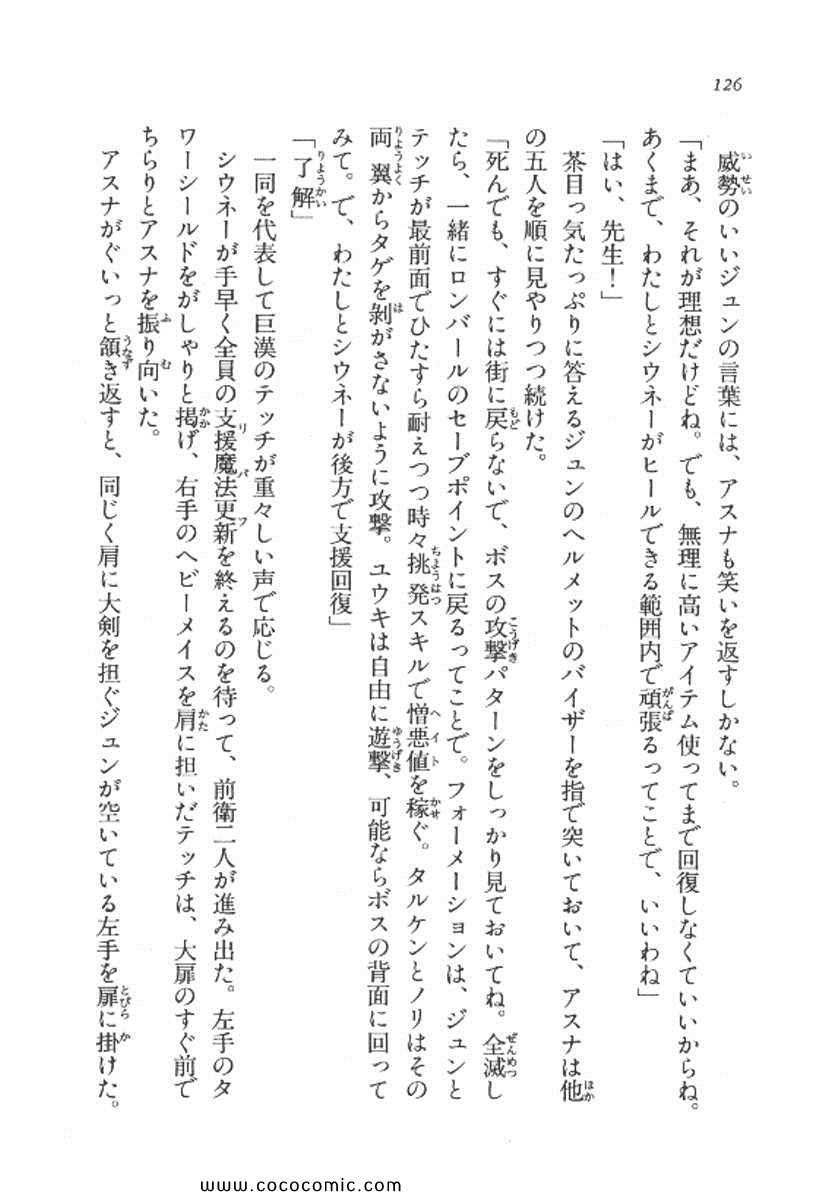 126
威勢のいいジュンの言葉には、アスナも笑いを返すしかない。
「まあ、それが理想だけどね。でも、無理に高いアイテム使ってまで回復しなくていいからね。
あくまで、わたしとシウネーがヒールできる範囲内で頑張るってことで、いいわね」
「はい、先生！」
茶目っ気たっぷりに答えるジュンのヘルメットのバイザーを指で突いておいて、アスナは他
の五人を順に見やりつつ続けた。
「死んでも、すぐには街に戻らないで、ボスの攻撃パターンをしっかり見ておいてね。全滅し
たら、一緒にロンバールのセーブポイントに戻るってことで。フォーメーションは、ジュンと
テッチが最前面でひたすら耐えつつ時々挑発スキルで憎悪値を稼ぐ。タルケンとノリはその
両翼からタゲを剝がさないように攻撃。ユウキは自由に遊撃、可能ならボスの背面に回って
みて。で、わたしとシウネーが後方で支援回復」
「了解」
一同を代表して巨漢のテッチが重々しい声で応じる。
シウネーが手早く全員の支援魔法更新を終えるのを待って、前衛二人が進み出た。左手のタ
ワーシールドをがしゃりと掲げ、右手のヘビーメイスを肩に担いだテッチは、大扉のすぐ前で
ちらりとアスナを振り向いた。
アスナがぐいっと頷き返すと、同じく肩に大剣を担ぐジュンが空いている左手を扉に掛けた。
www.cococomic.com